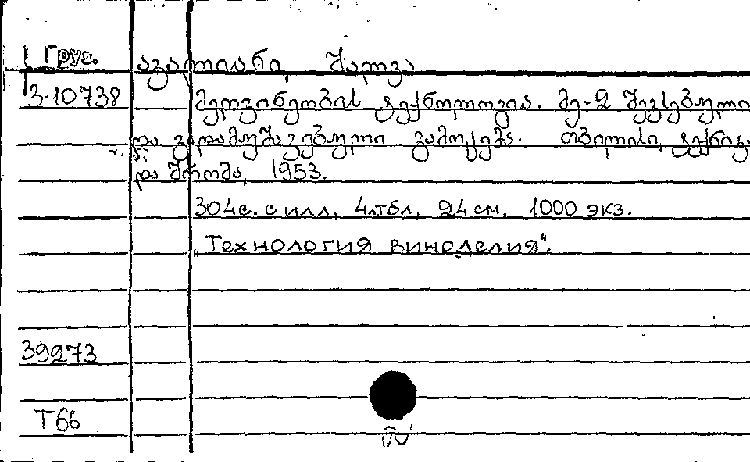 Груз. ავალიანი, შალვა
3-10738 მეღვინეობის ტექნოლოგია. მე-2 შევსებული
და გადამუშავებული გამოცემა. თბილისი, ტექნიკა
და შრომა, 1953.
304с. с илл., 4л.табл., 24 см, 1000 экз.
"Технология виноделия".
39273
Т66